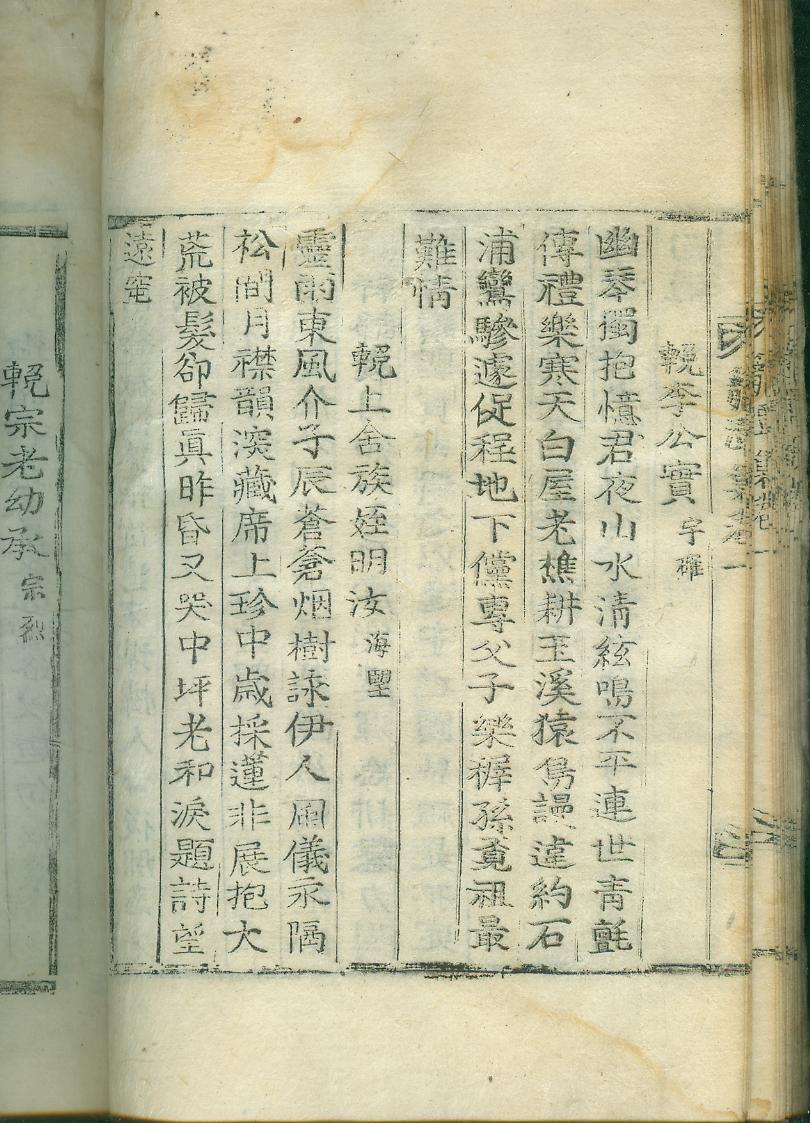 輓李公實 宇確
幽琴獨抱憶君夜山水淸絃鳴不平連世靑氈
傳禮樂寒天白屋老樵耕玉溪猿傷謾違約石
浦鸞驂遽促程地下儻專父子樂穉孫覔祖最
難情
輓上舍族姪明汝 海望
靈雨東風介子辰蒼蒼烟樹詠伊人風儀永隔
松間月襟韻深藏席上珍中歲採蓮非展抱大
荒被髮卻歸眞昨昏又哭中坪老和淚題詩望
遠窀
輓宗老幼承 宗烈